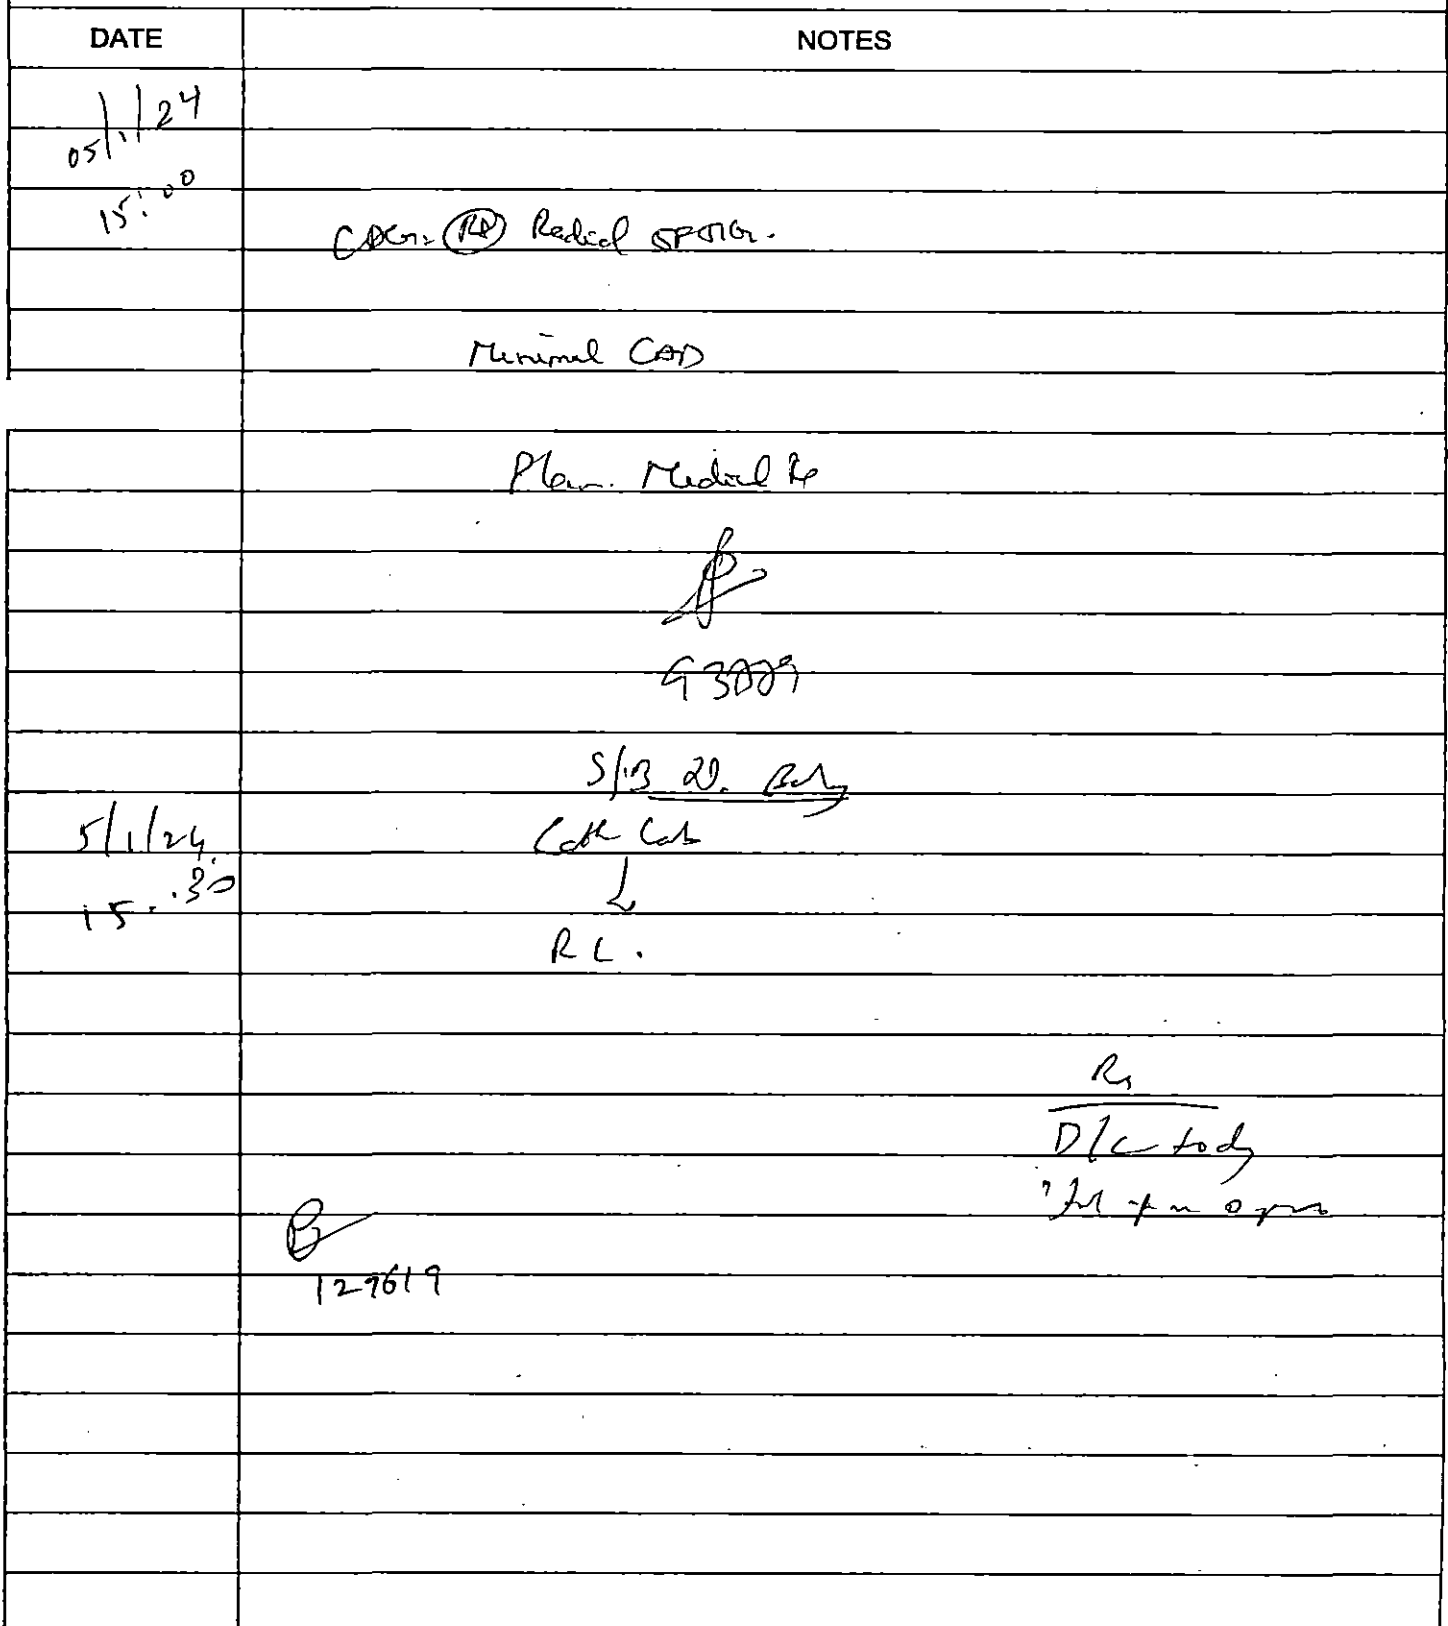 DATE NOTES
05/1/24
15:00
CAG: Rt Radial
Minimal CAD
Plan. Medical Rx
S/B
5/1/24.
15.30
Cath Lab
↓
RL.
Rx
D/C today
129619